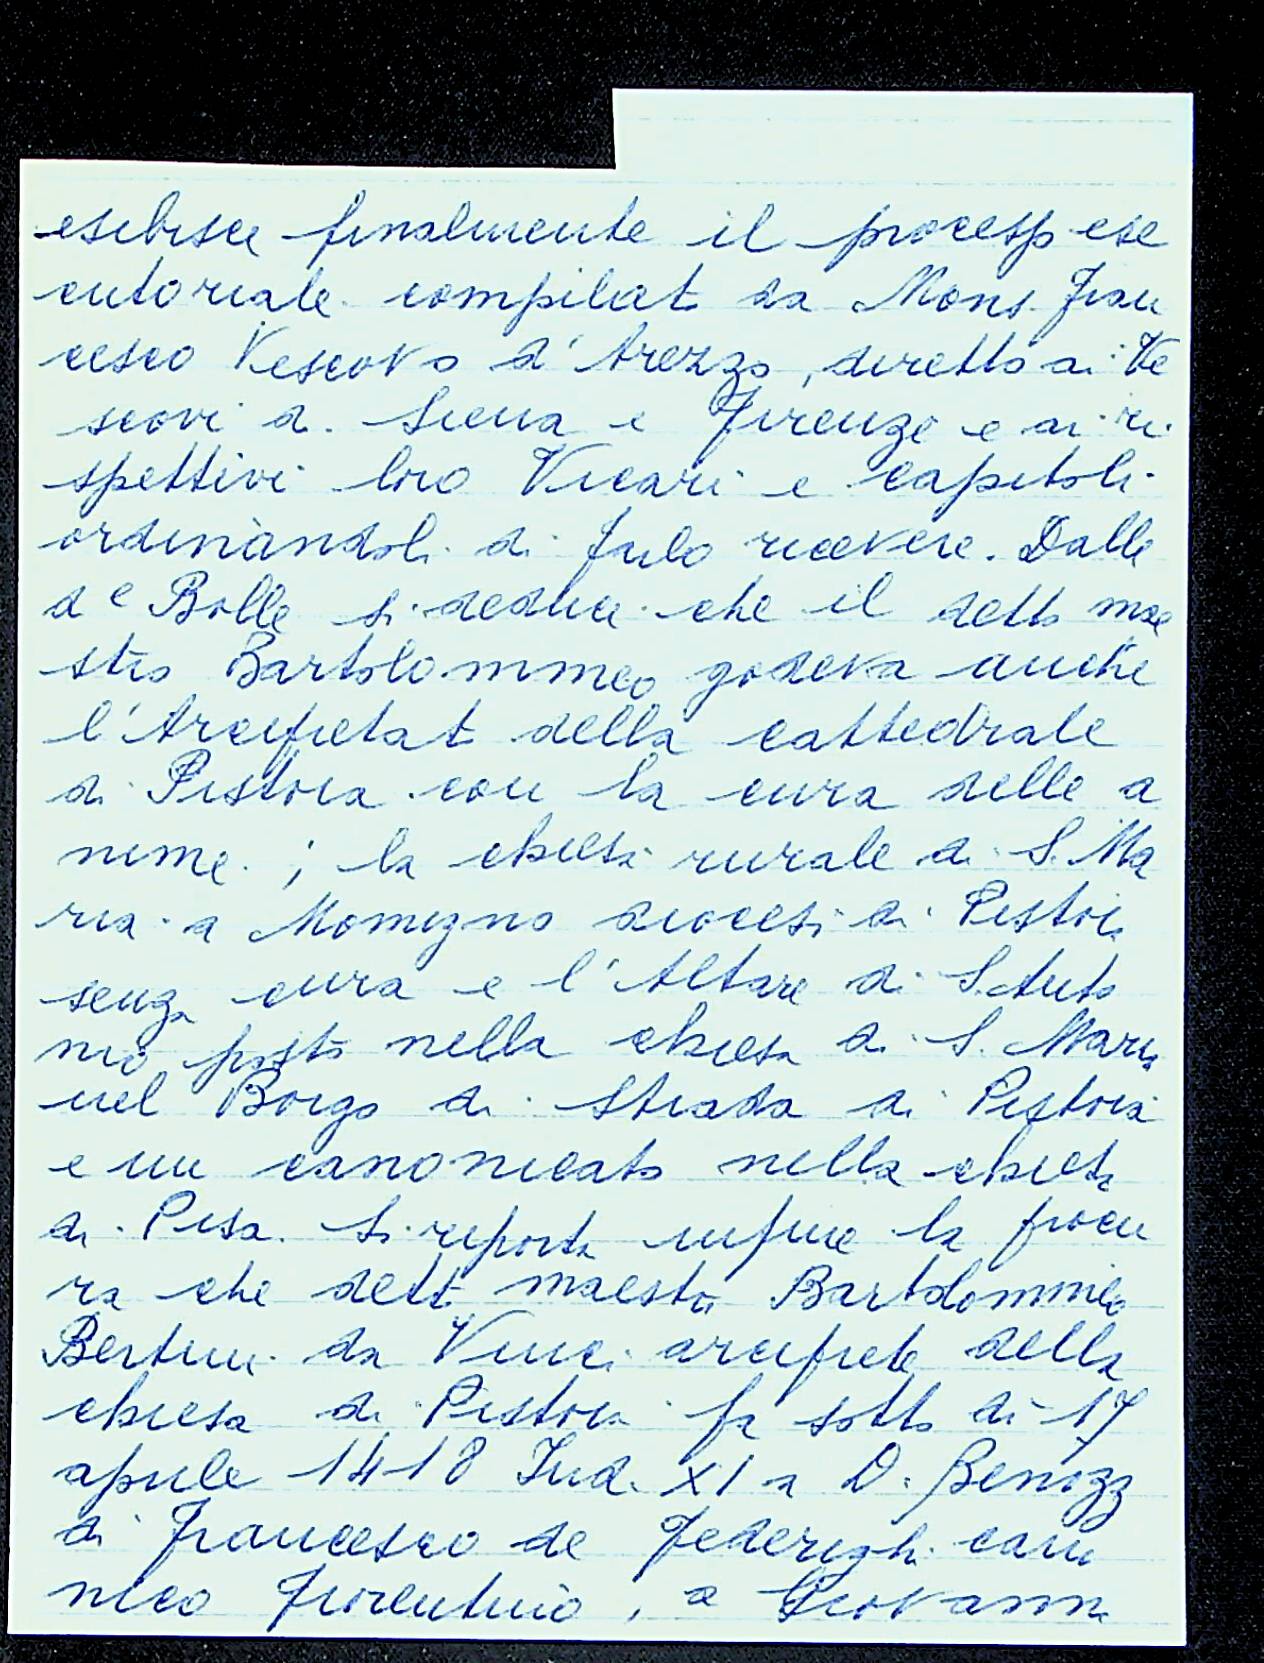 esibisce finalmente il processo ese
cutoriale compilato da Mons. Fran
cesco Vescovo d'Arezzo, diretto ai Ve
scovi di Siena e Firenze e ai ri
spettivi loro Vicari e Capitoli
ordinandoli di farlo ricevere. Dalle
de Bolle si deduce che il detto mae
stro Bartolommeo godeva anche
l'Arcipretato della cattedrale
di Pistoia con la cura delle a
nime ; la chiesa rurale di S. Ma
ria a Momigno diocesi di Pistoia
senza cura e l'Altare di S. Anto
nio posto nella chiesa di S. Maria
nel Borgo di Strada di Pistoia
e un canonicato nella chiesa
di Pisa. Si riporta infine la procu
ra che detto maestro Bartolommeo
Bertini da Vinci arciprete della
chiesa di Pistoia fa sotto di 17
aprile 1418 Ind. XI a D. Benozzo
di Francesco de Federighi cano
nico fiorentino, a Giovanni